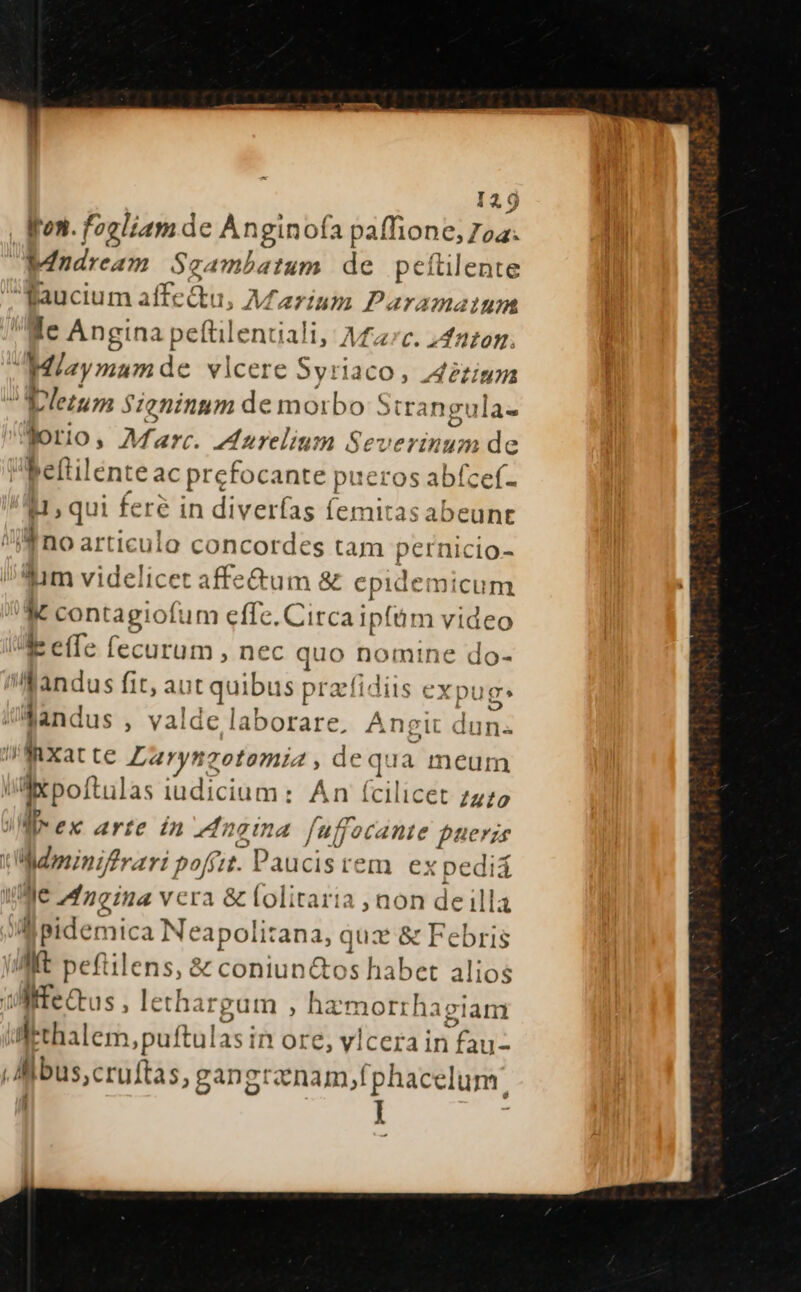 129
fogliam de Anginoſa paſſione, Ioa:
Andream Sgambatum de peſtilente
faucium affectu, Marium Paramatum
de Angina peſtilentiali, Marc. Anton.
Alaymum de vlcere Syriaco, Aëtium
Cletum Signinum de morbo Strangula-
torio, Marc. Aurelium Severinum de
peſtilente ac prefocante pueros abſceſ-
qui ferè in diverſas ſemitas abeunt
no articulo concordes tam pernicio-
ſum videlicet affectum & epidemicum
& contagioſum eſſe. Circa ipſûm video
eſſe ſecurum, nec quo nomine do-
mandus ſit, aut quibus præſidiis expug-
nandus, valde laborare. Angit dun-
taxat te Laryngotomia, de qua meum
expoſtulas iudicium: An ſcilicet tuto
ex arte in Angina ſuffocante pueris
adminiſtrari poſſit. Paucis rem expediã
de Angina vera & ſolitaria, non de illa
Epidemica Neapolitana, quæ & Febris
eſt peſtilens, & coniunctos habet alios
affectus, lethargum, hæmorrhagiam
lethalem, puſtulas in ore, vlcera in fau-
cibus, cruſtas, gangrænam, ſphacelum,
I